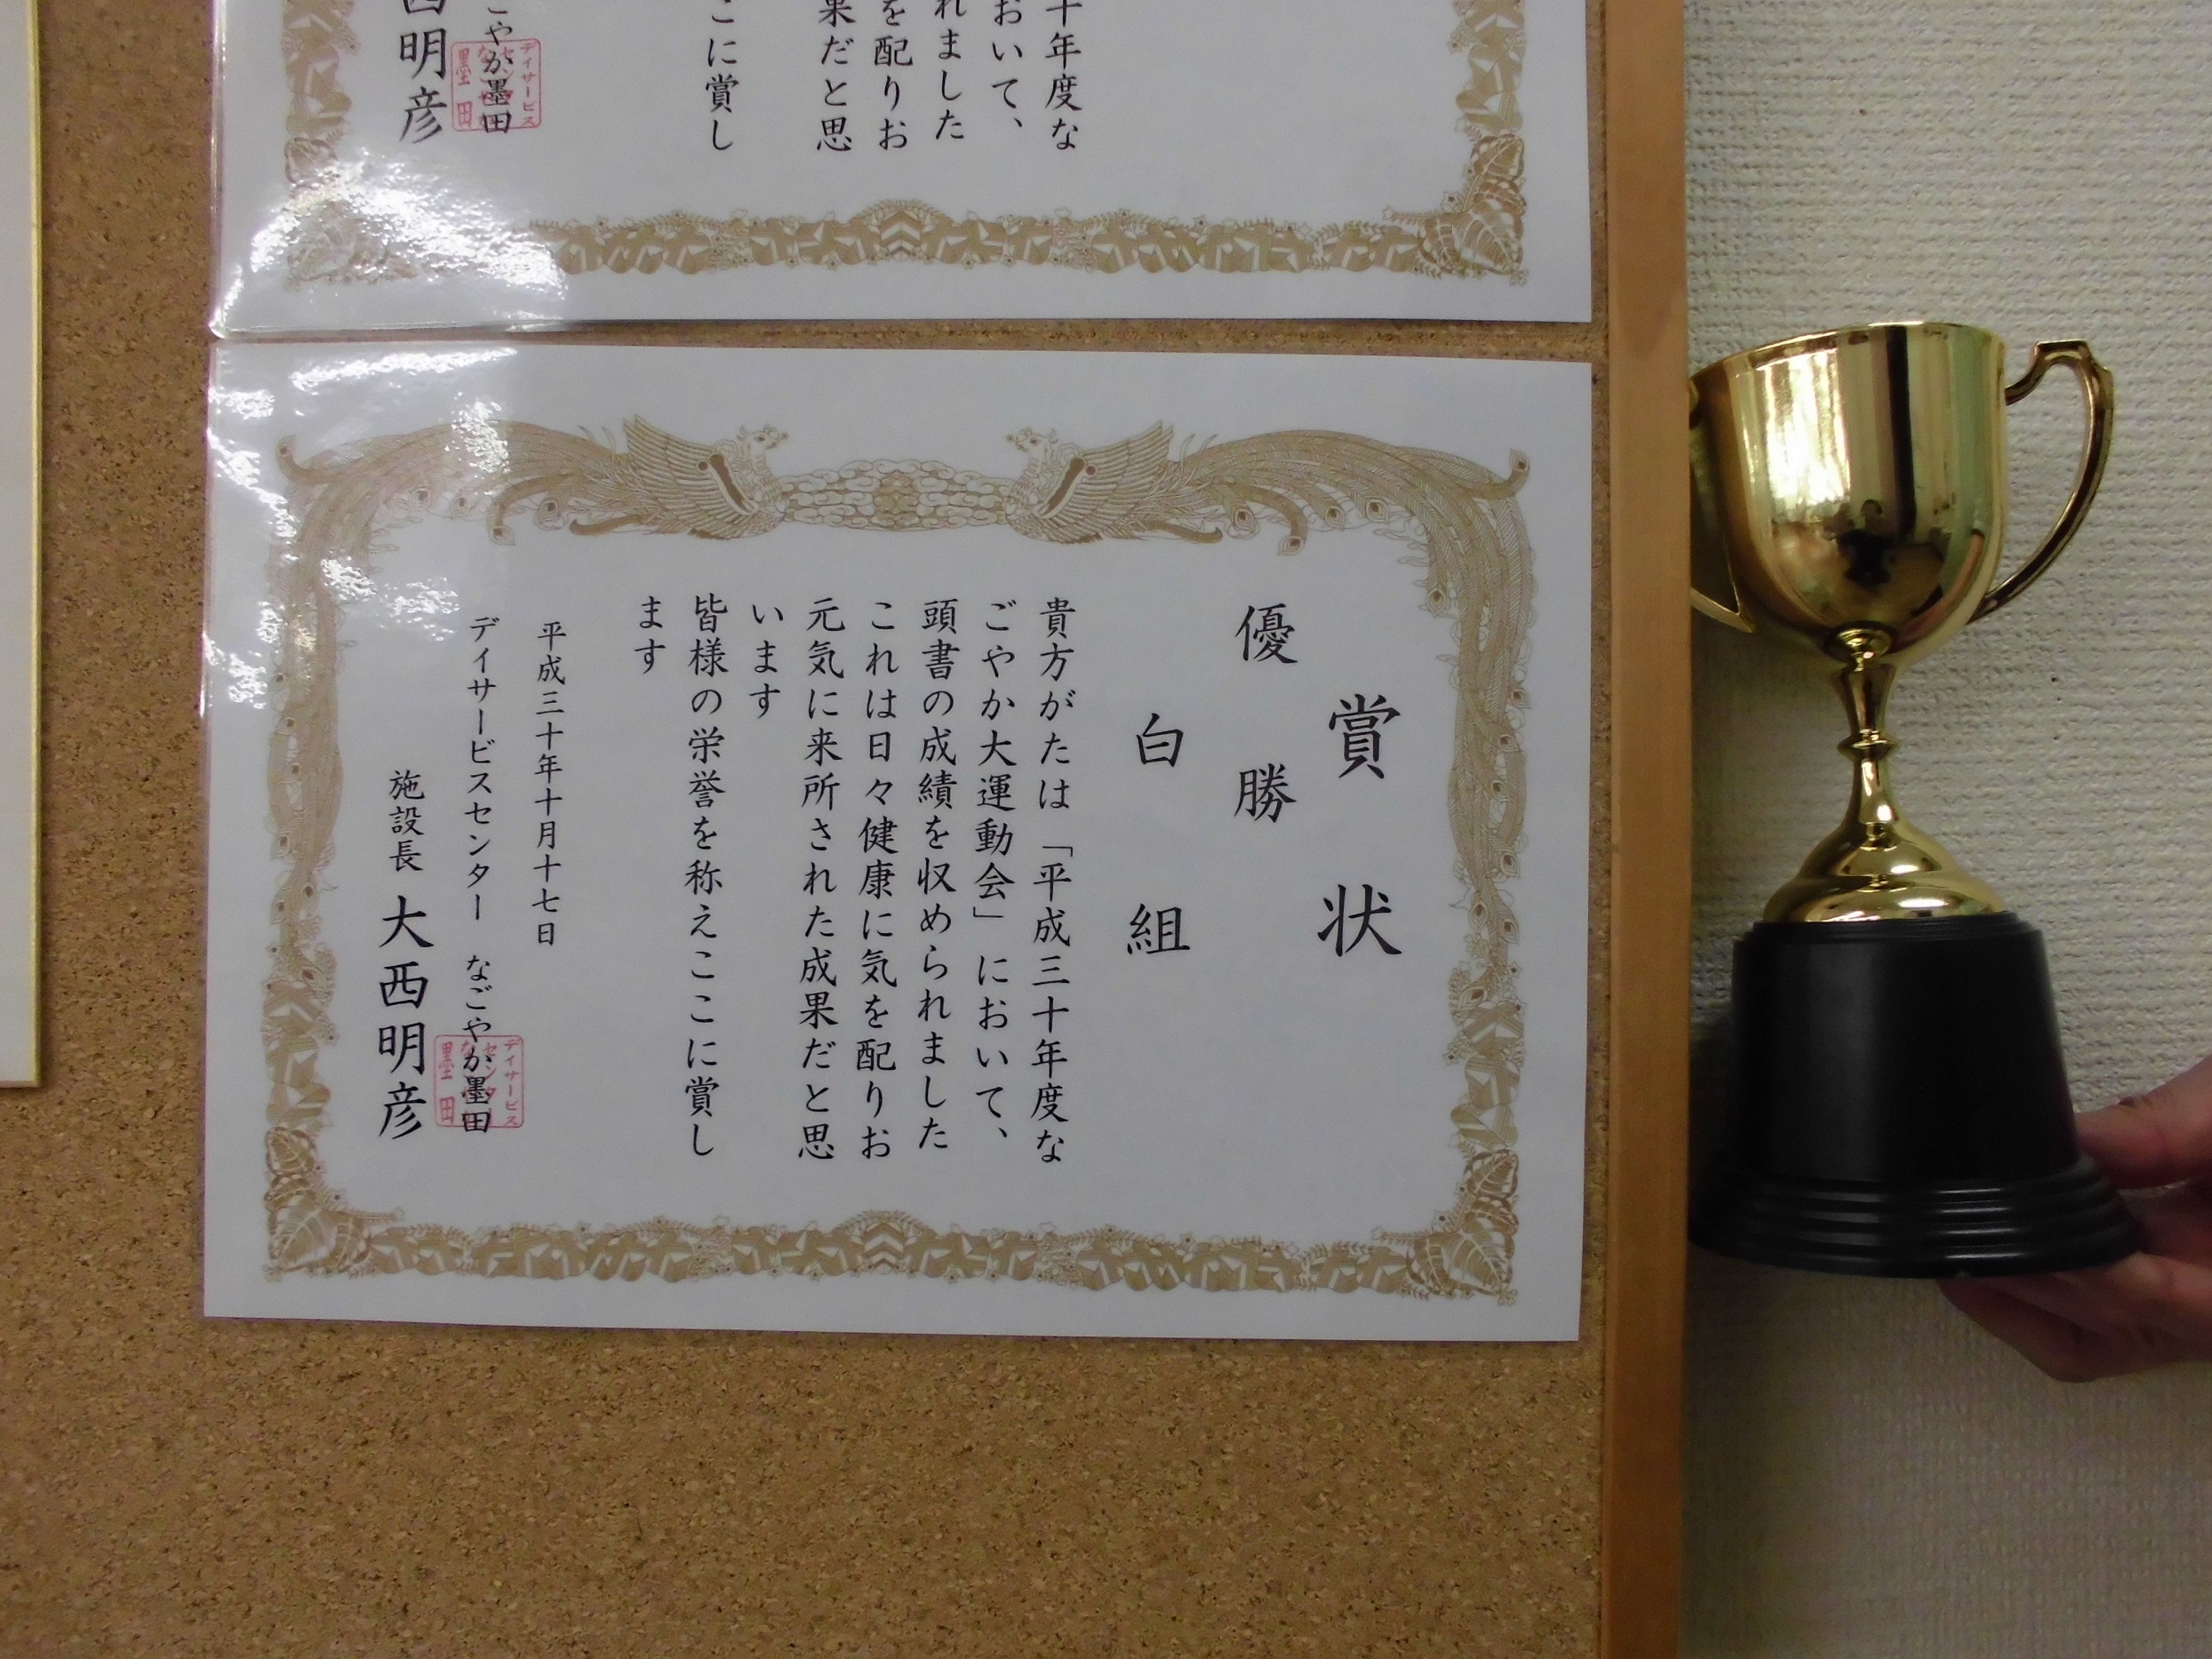 十年度な
おいて、
れました
を配りお
果だと思
こに賞し
こやか墨田
デイサービス
センター
墨田
西明彦
賞状
優勝
白組
貴方がたは「平成三十年度な
ごやか大運動会」において、
頭書の成績を収められました
これは日々健康に気を配りお
元気に来所された成果だと思
います
皆様の栄誉を称えここに賞し
ます
平成三十年十月十七日
デイサービスセンター なごやか墨田
デイサービス
センター
墨田
施設長 大西明彦